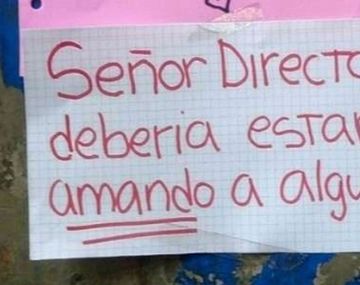 Señor Directo
deberia estar
amando a algu